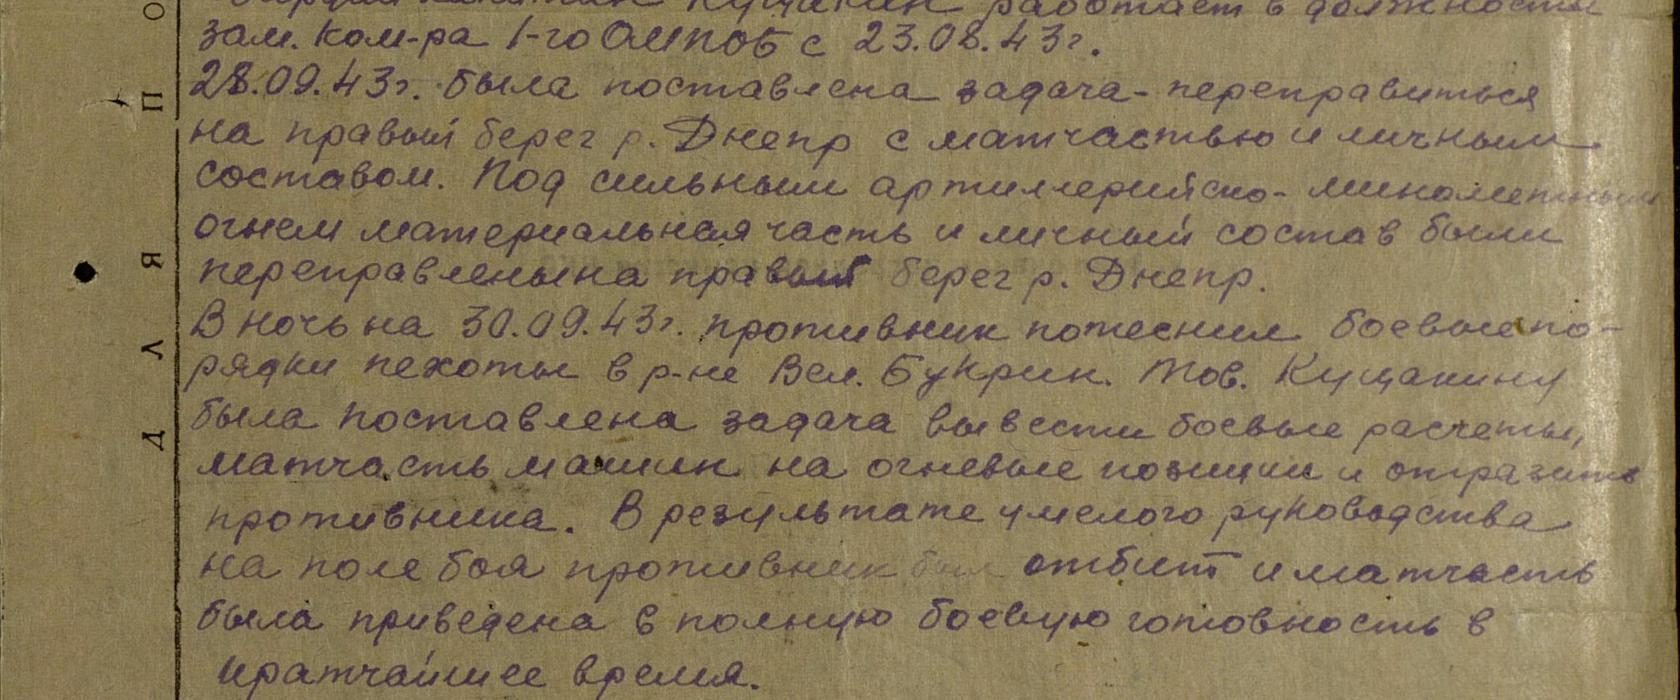 капитан Кущакин работает в должности
зам. ком-ра 1-го ОМПОБ с 23.08.43г.
28.09.43г. была поставлена задача - переправиться
на правый берег р. Днепр с матчастью и личным
составом. Под сильным артиллерийско-минометным
огнем материальная часть и личный состав были
переправлены на правый берег р. Днепр.
В ночь на 30.09.43г. противник потеснил боевые по-
рядки пехоты в р-не Вел. Букрин. Тов. Кущакину
была поставлена задача вывести боевые расчеты,
матчасть машин на огневые позиции и отразить
противника. В результате умелого руководства
на поле боя противник был отбит и матчасть
была приведена в полную боевую готовность в
кратчайшее время.
Д Л Я П О